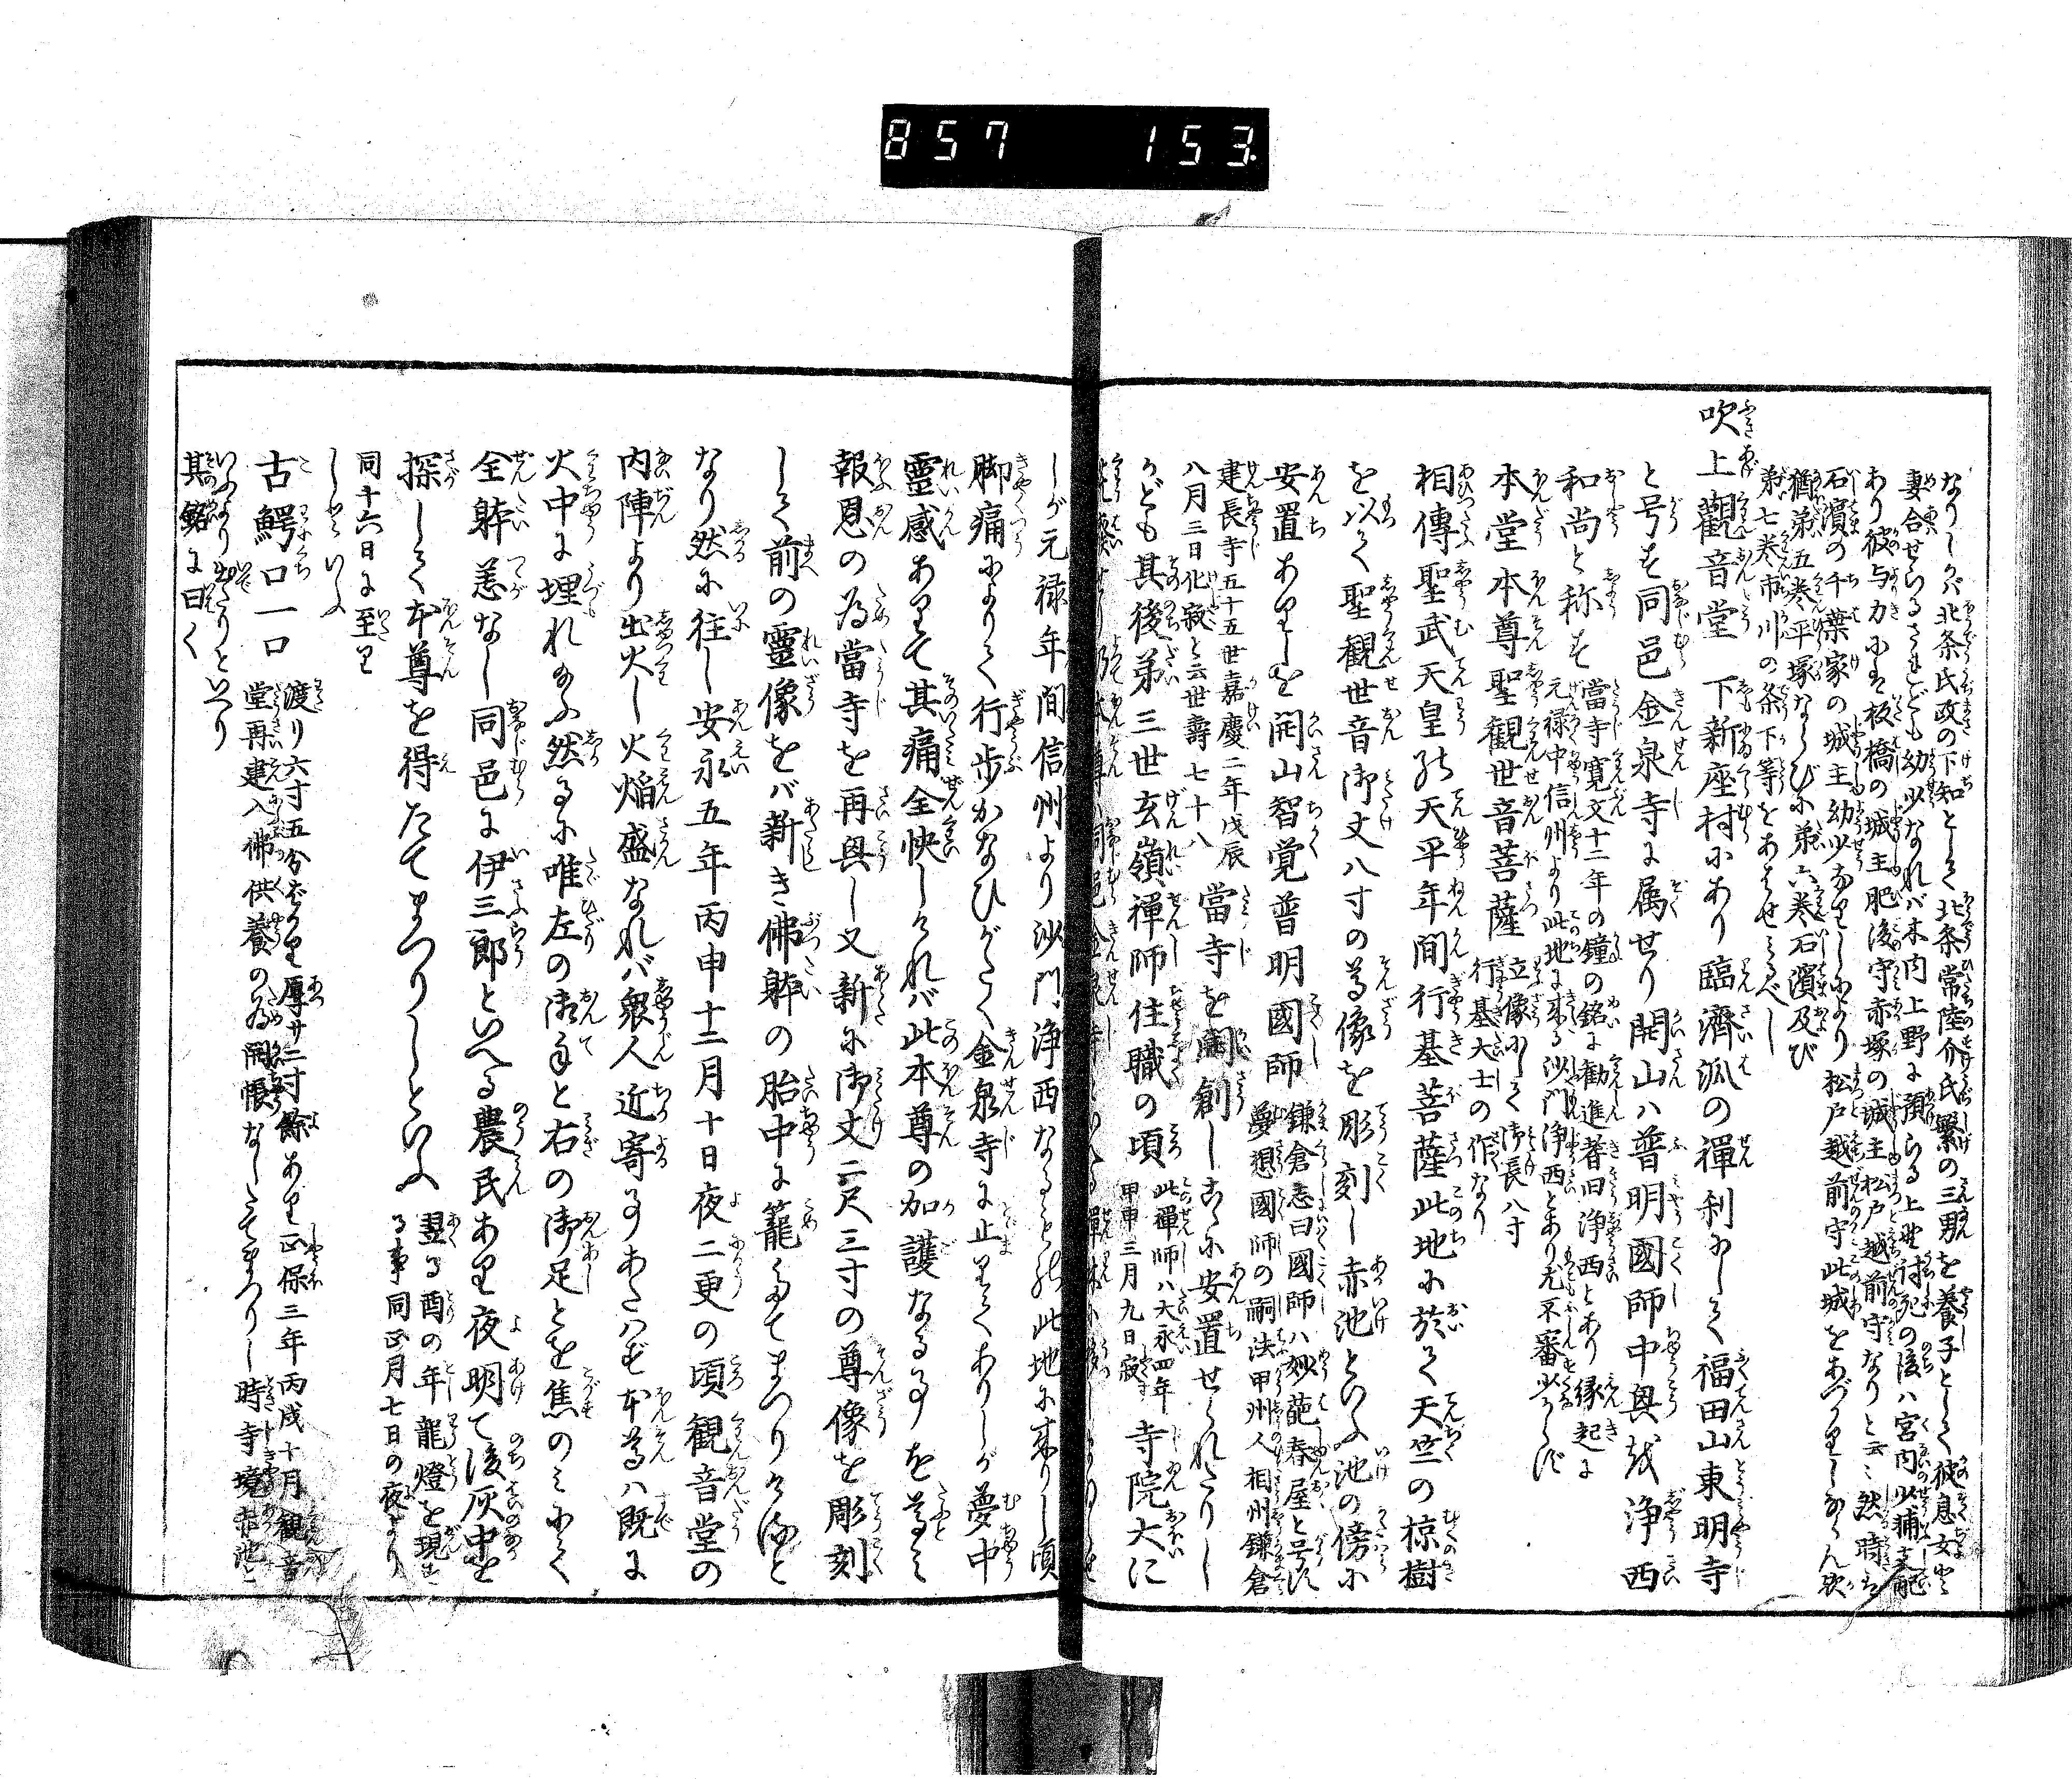 857 153
なりしが北条氏政の下知として北条常陸介氏繁の三男を養子として彼息女に
妻合せらるされども幼少なれバ木内上野に預らる上世討死の後ハ宮内少輔支配
あり彼与力にハ板橋の城主肥後守赤塚の城主松戸越前守なりと云々然時ハ
石濱の千葉家の城主幼少なりしにより松戸越前守此城をあづかりしならん欤
猶弟五巻平塚ならびに弟六巻石濱及び
弟七巻市川の条下等をあはせみるべし
吹上觀音堂 下新座村にあり臨濟派の禪刹にして福田山東明寺
と号す同邑金泉寺に属せり開山ハ普明國師中興を浄西
和尚と称す
當寺寛文十二年の鐘の銘に勧進者曰浄西とあり縁起に
元禄中信州より此地に来る沙門浄西とあり尤不審少からず
本堂本尊聖観世音菩薩
立像にして御長八寸
行基大士の作なり
相傳聖武天皇の天平年間行基菩薩此地に於て天竺の椋樹
を以て聖観世音御丈八寸の尊像を彫刻し赤池といふ池の傍に
安置ありしを開山智覚普明國師
鎌倉志曰國師ハ妙葩春屋と号す
夢想國師の嗣法甲州人相州鎌倉
建長寺五十五世嘉慶二年戊辰
八月三日化寂と云世壽七十八
當寺を開創しこゝに安置せられたりし
かども其後第三世玄嶺禪師住職の頃
此禪師ハ大永四年
甲申三月九日寂
寺院大に
しが元禄年間信州より沙門浄西なるもの此地に来りし頃
脚痛によりて行歩かなひがたく金泉寺に止りてありしが夢中
靈感ありて其痛全快しけれバ此本尊の加護なる事を尊み
報恩の為當寺を再興し又新に御丈二尺三寸の尊像を彫刻
して前の靈像をバ新き佛躰の胎中に籠たてまつりけると
なり然に往し安永五年丙申十二月十日夜二更の頃観音堂の
内陣より出火し火焔盛なれバ衆人近寄る事あたハず本尊ハ既に
火中に埋れ給ふ然るに唯左の御手と右の御足とを焦のミにて
全躰恙なし同邑に伊三郎といへる農民あり夜明て後灰中を
探して本尊を得たてまつりしといふ
翌る酉の年龍燈を現ず
る事同正月七日の夜より
同十六日に至り
しといふ
古鰐口一口
渡リ六寸五分ばかり厚サ二寸餘あり正保三年丙戌十月観音
堂再建入佛供養の為開帳なしたてまつりし時寺境赤池と
いふより出たりといへり
其銘に曰く